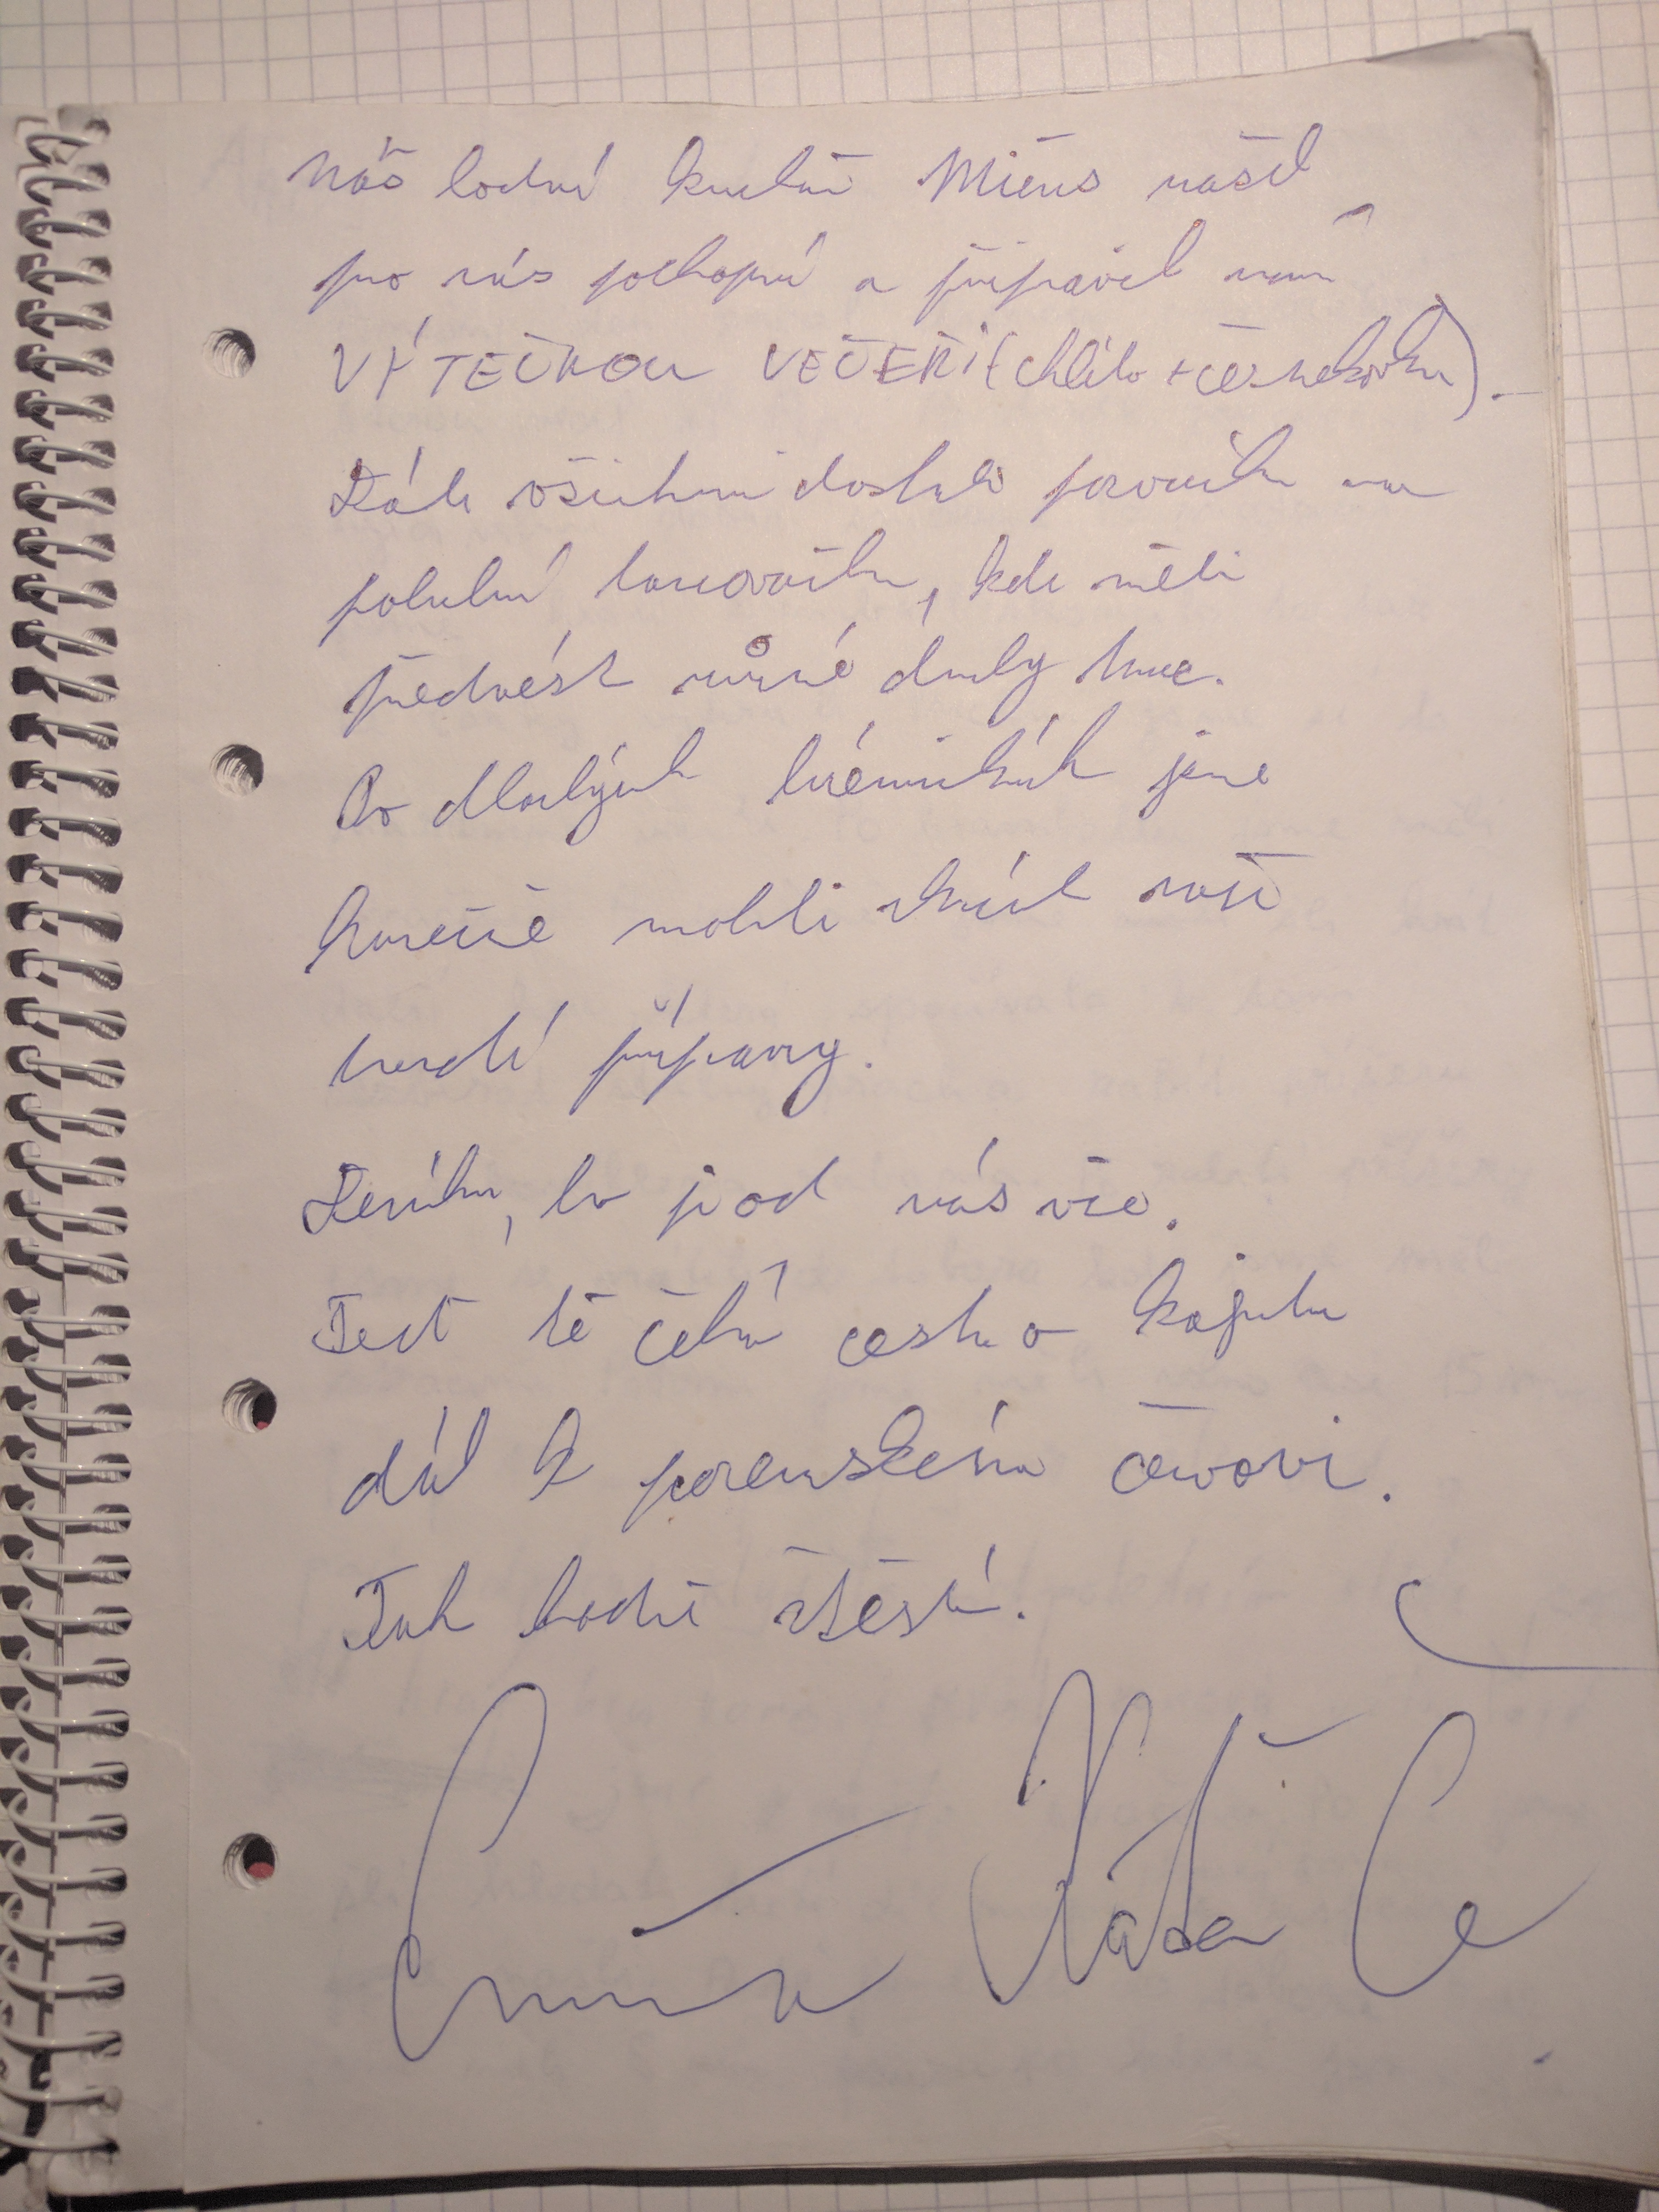 Náš lodní kuchař našel
pro nás pochopení a připravil nám
VÝTEČNOU VEČEŘI (chleba + česnekovku).
Dále všichni dostali pozvánku na
palubní tancovačku, kde měli
přednést různé druhy tance.
Po dlouhých trénincích jsme
konečně mohli zkusit naše
tvrdé přípravy.
Deníku, to je od nás vše.
Teď tě čeká cesta o kajutu
dál k červovi.
Tak hodně štěstí.